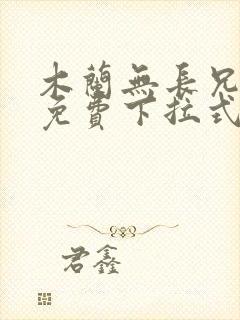 木蘭無長兄
免費下拉式
君鑫